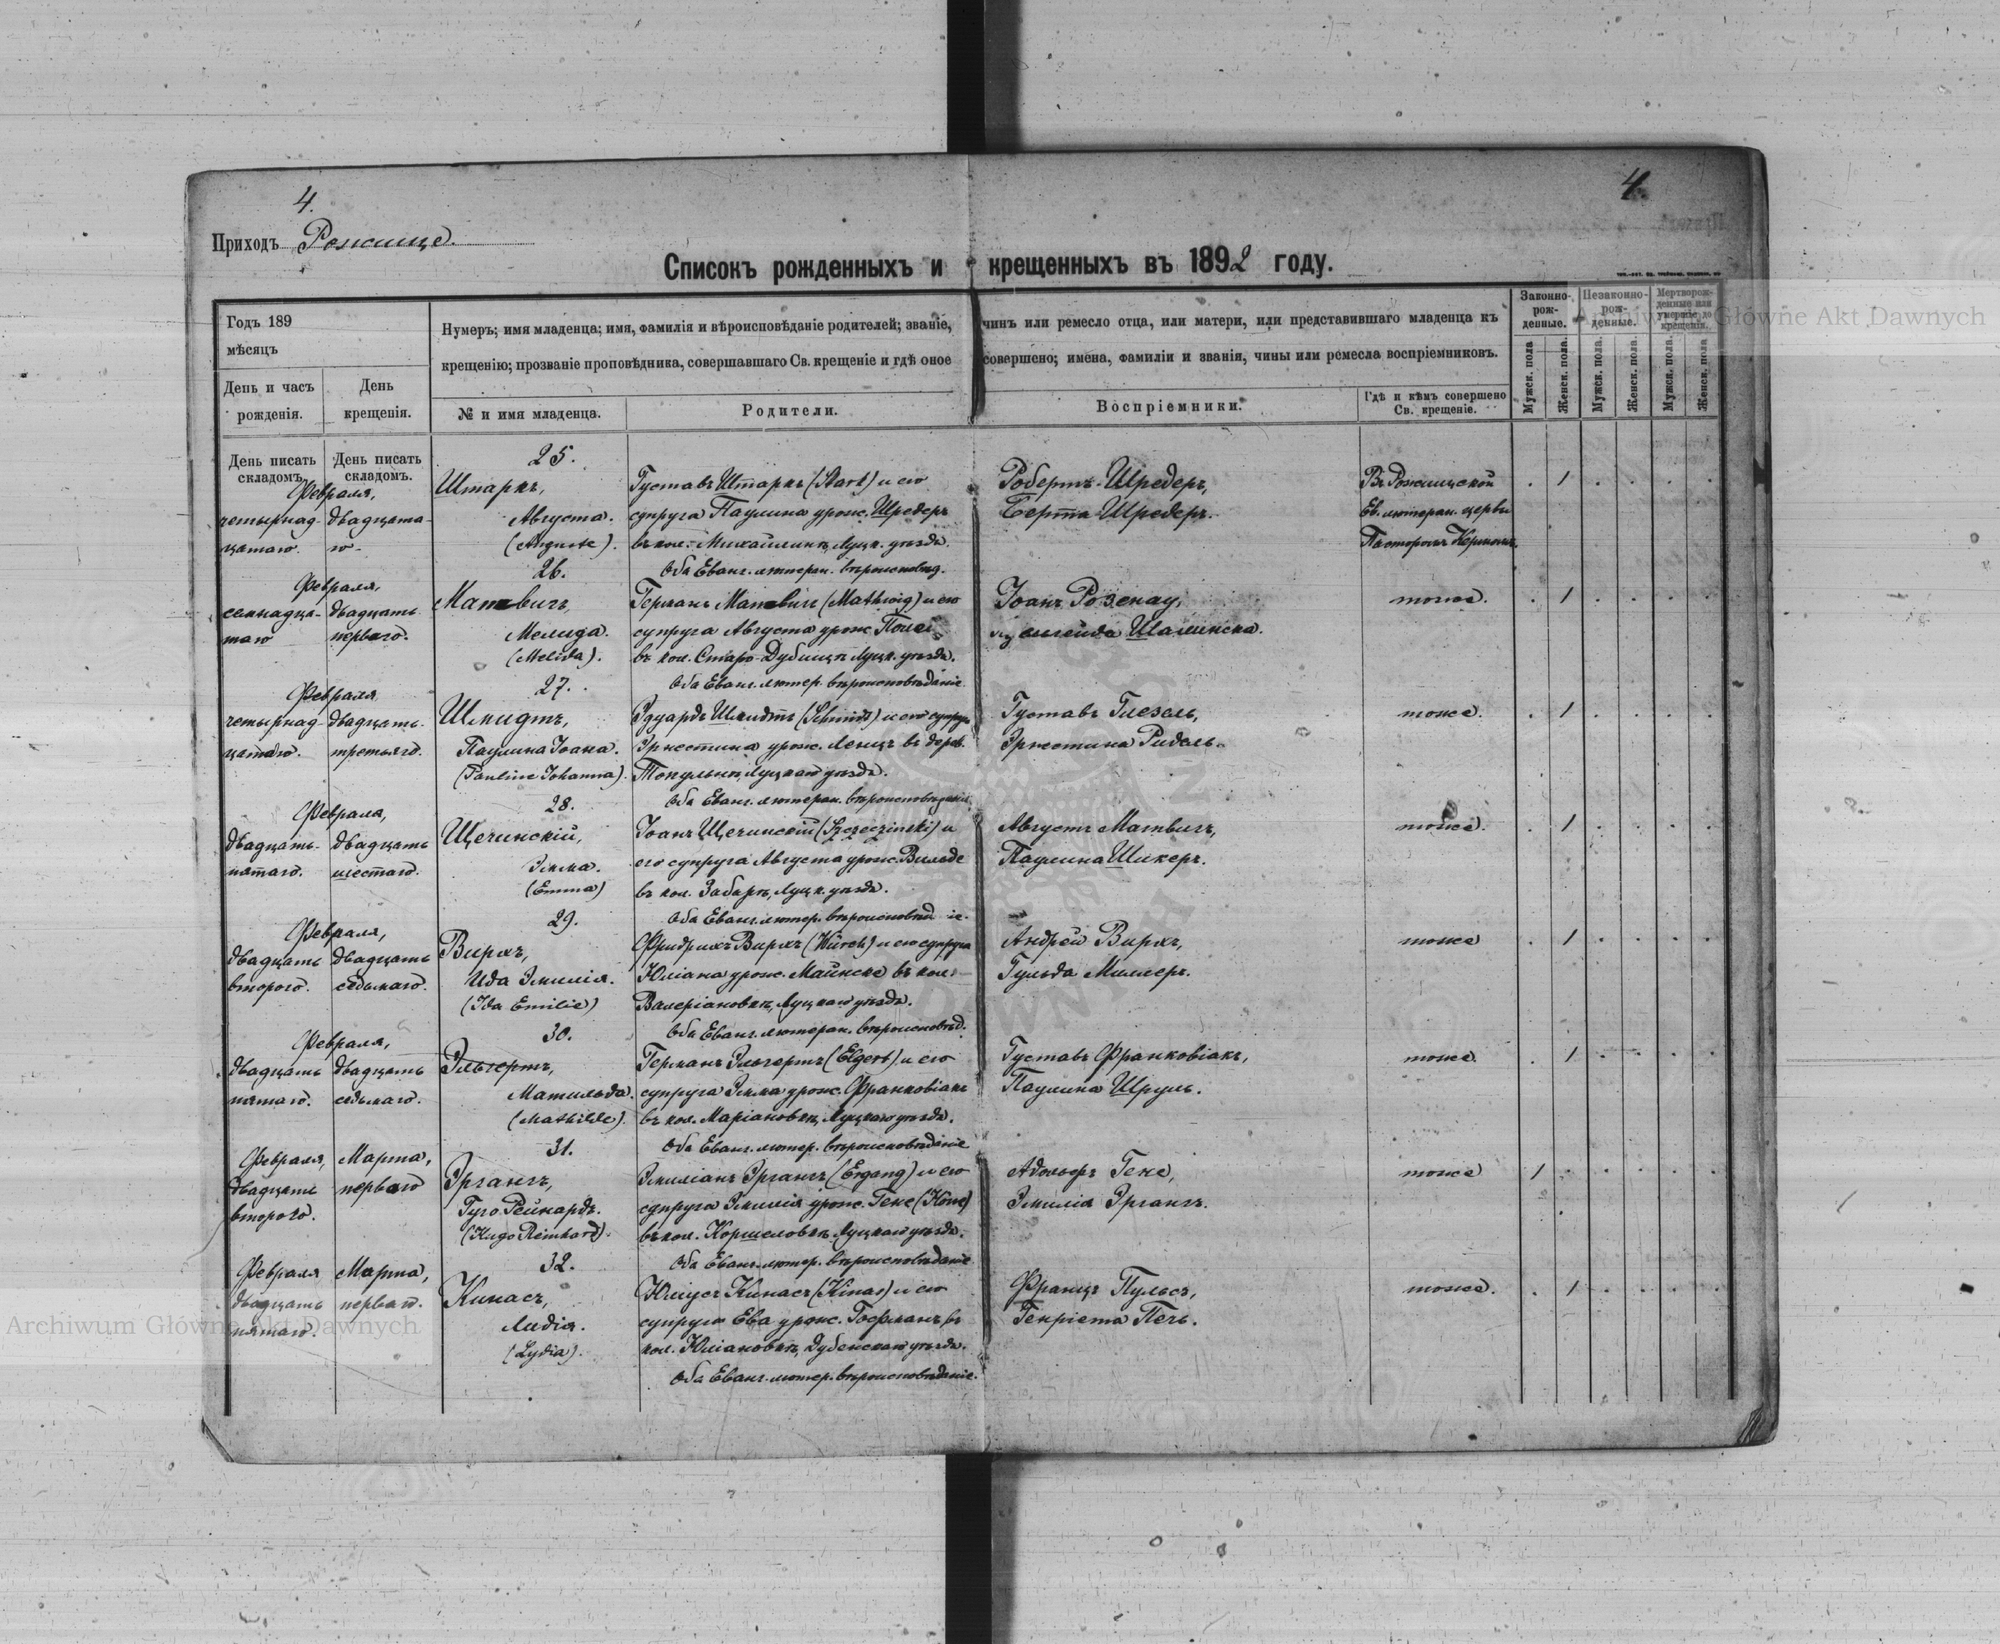 4.
4.
Приходъ Рожище.
Списокъ рожденныхъ и крещенныхъ въ 1892 году.
Годъ 189
мѣсяцъ
День и часъ рожденія.
День крещенія.
Нумеръ; имя младенца; имя, фамилія и вѣроисповѣданіе родителей; званіе, чинъ или ремесло отца, или матери, или представившаго младенца къ
крещенію; прозваніе проповѣдника, совершавшаго Св. крещеніе и гдѣ оное совершено; имена, фамиліи и званія, чины или ремесла воспріемниковъ.
№ и имя младенца.
Родители.
Воспріемники.
Гдѣ и кѣмъ совершено Св. крещеніе.
Законно-рож-денные.
Незаконно-рож-денные.
Мертворож-денные или умершіе до крещенія.
Мужск. пола
Женск. пола.
Мужск. пола.
Женск. пола.
Мужск. пола.
Женск. пола
День писать складомъ.
День писать складомъ.
25.
Февраля,
четырнад-
цатаго.
двадцата-
го.
Штаркъ,
Августа.
(Auguste).
Густавъ Штаркъ (Stark) и его
супруга Паулина урож. Шредеръ
въ кол. Михайлинѣ, Луцк. уѣзда.
Оба Еванг. лютеран. вѣроисповѣд.
Робертъ Шредеръ,
Берта Шредеръ.
Въ Рожищской
Ев. лютеран. церкви
Пасторомъ
1
26.
Февраля,
семнадца-
таго
двадцать
перваго.
Матвигъ,
Мелида.
(Melida).
Германъ Матвигъ (Mathwig) и его
супруга Августа урож.
въ кол. Старо-Дубищѣ Луцк. уѣзда.
Оба Еванг. лютер. вѣроисповѣданіе
Іоанъ Розенау,
Шаминска.
тоже.
1
27.
Февраля
четырнад-
цатаго.
двадцать
третьяго.
Шмидтъ,
Паулина Іоана.
(Pauline Johanna).
Эдуардъ Шмидтъ (Schmidt) и его супруга
Эрнестина урож. Ленцъ въ дерев.
Топульнѣ, Луцкаго уѣзда.
Оба Еванг. лютеран. вѣроисповѣданія
Густавъ Гиезель,
Эрнестина Ридель.
тоже.
1
28.
Февраля,
двадцать
пятаго.
двадцать
шестаго.
Щечинскій,
Эмма.
(Emma)
Іоанъ Щечинскій (Szczeczinski) и
его супруга Августа урож. Вильде
въ кол. Забарѣ, Луцк. уѣзда.
Оба Еванг. лютер. вѣроисповѣд іе.
Августъ Матвигъ,
Паулина Шикеръ.
тоже.
1
29.
Февраля,
двадцать
второго.
двадцать
седьмаго.
Вирхъ,
Ида Эмилія.
(Ida Emilie)
Фридрихъ Вирхъ (Würch) и его супруга
Юліана урож. Маинске въ кол.
Валеріановкѣ, Луцкаго уѣзда.
Оба Еванг. лютеран. вѣроисповѣд.
Андрей Вирхъ,
Гульда Миллеръ.
тоже
1
30.
Февраля,
двадцать
пятаго.
двадцать
седьмаго.
Эльгертъ,
Матильда.
(Mathilde).
Германъ Эльгертъ (Elgert) и его
супруга Эмма урож. Франковіакъ
въ кол. Маріановкѣ, Луцкаго уѣзда.
Оба Еванг. лютер. вѣроисповѣданіе
Густавъ Франковіакъ,
Паулина Шруль.
тоже
1
31.
Февраля,
двадцать
второго.
Марта,
перваго
Эргангъ,
Гуго Рейнардъ.
(Hugo Reinhard).
Эмиліанъ Эргангъ (Ergang) и его
супруга Эмилія урож. Гене (Höne)
въ кол. Коршеловкѣ, Луцкаго уѣзда.
Оба Еванг. лютер. вѣроисповѣданіе
Адольфъ Гене,
Эмилія Эргангъ.
тоже
1
32.
Февраля
двадцать
пятаго.
Марта,
перваго.
Кинасъ,
Лидія.
(Lydia).
Юліусъ Кинасъ (Kinas) и его
супруга Ева урож. Гофманъ въ
кол. Юліановкѣ, Дубенскаго уѣзда.
Оба Еванг. лютер. вѣроисповѣданіе.
Францъ Пульсъ,
Генріета Печъ.
тоже.
1
Archiwum Główne Akt Dawnych
Archiwum Główne Akt Dawnych